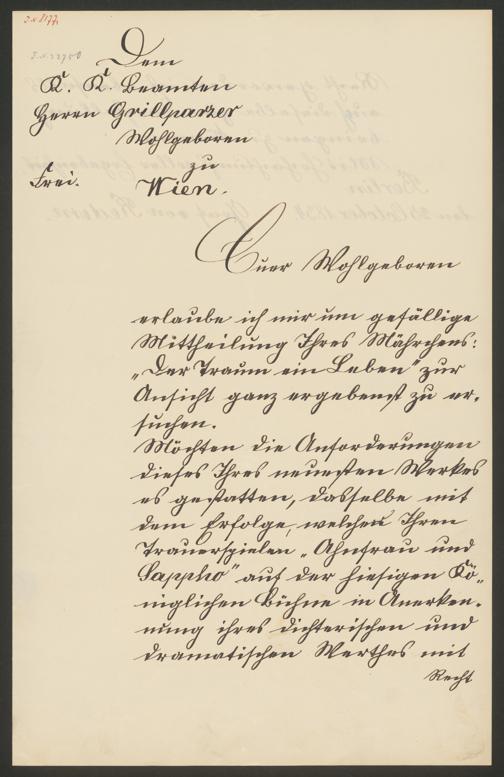 J.N. 8177.
J.N. 22750
Dem
K. K. Beamten
Herrn Grillparzer
Wohlgeboren
zu
Frei. Wien.
Euer Wohlgeboren
erlaube ich mir um gefällige
Mittheilung Ihres Mährchens:
„Der Traum ein Leben" zur
Ansicht ganz ergebenst zu er-
suchen.
Möchten die Anforderungen
dieses Ihres neuesten Werkes
es gestatten, dasselbe mit
dem Erfolge, welchen Ihren
Trauerspielen „Ahnfrau und
Sappho" auf der hiesigen Kö-
niglichen Bühne in Anerken-
nung ihres dichterischen und
dramatischen Werthes mit
Recht